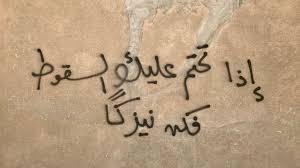 إذا تحتم عليك السقوط
فكن نيزكًا